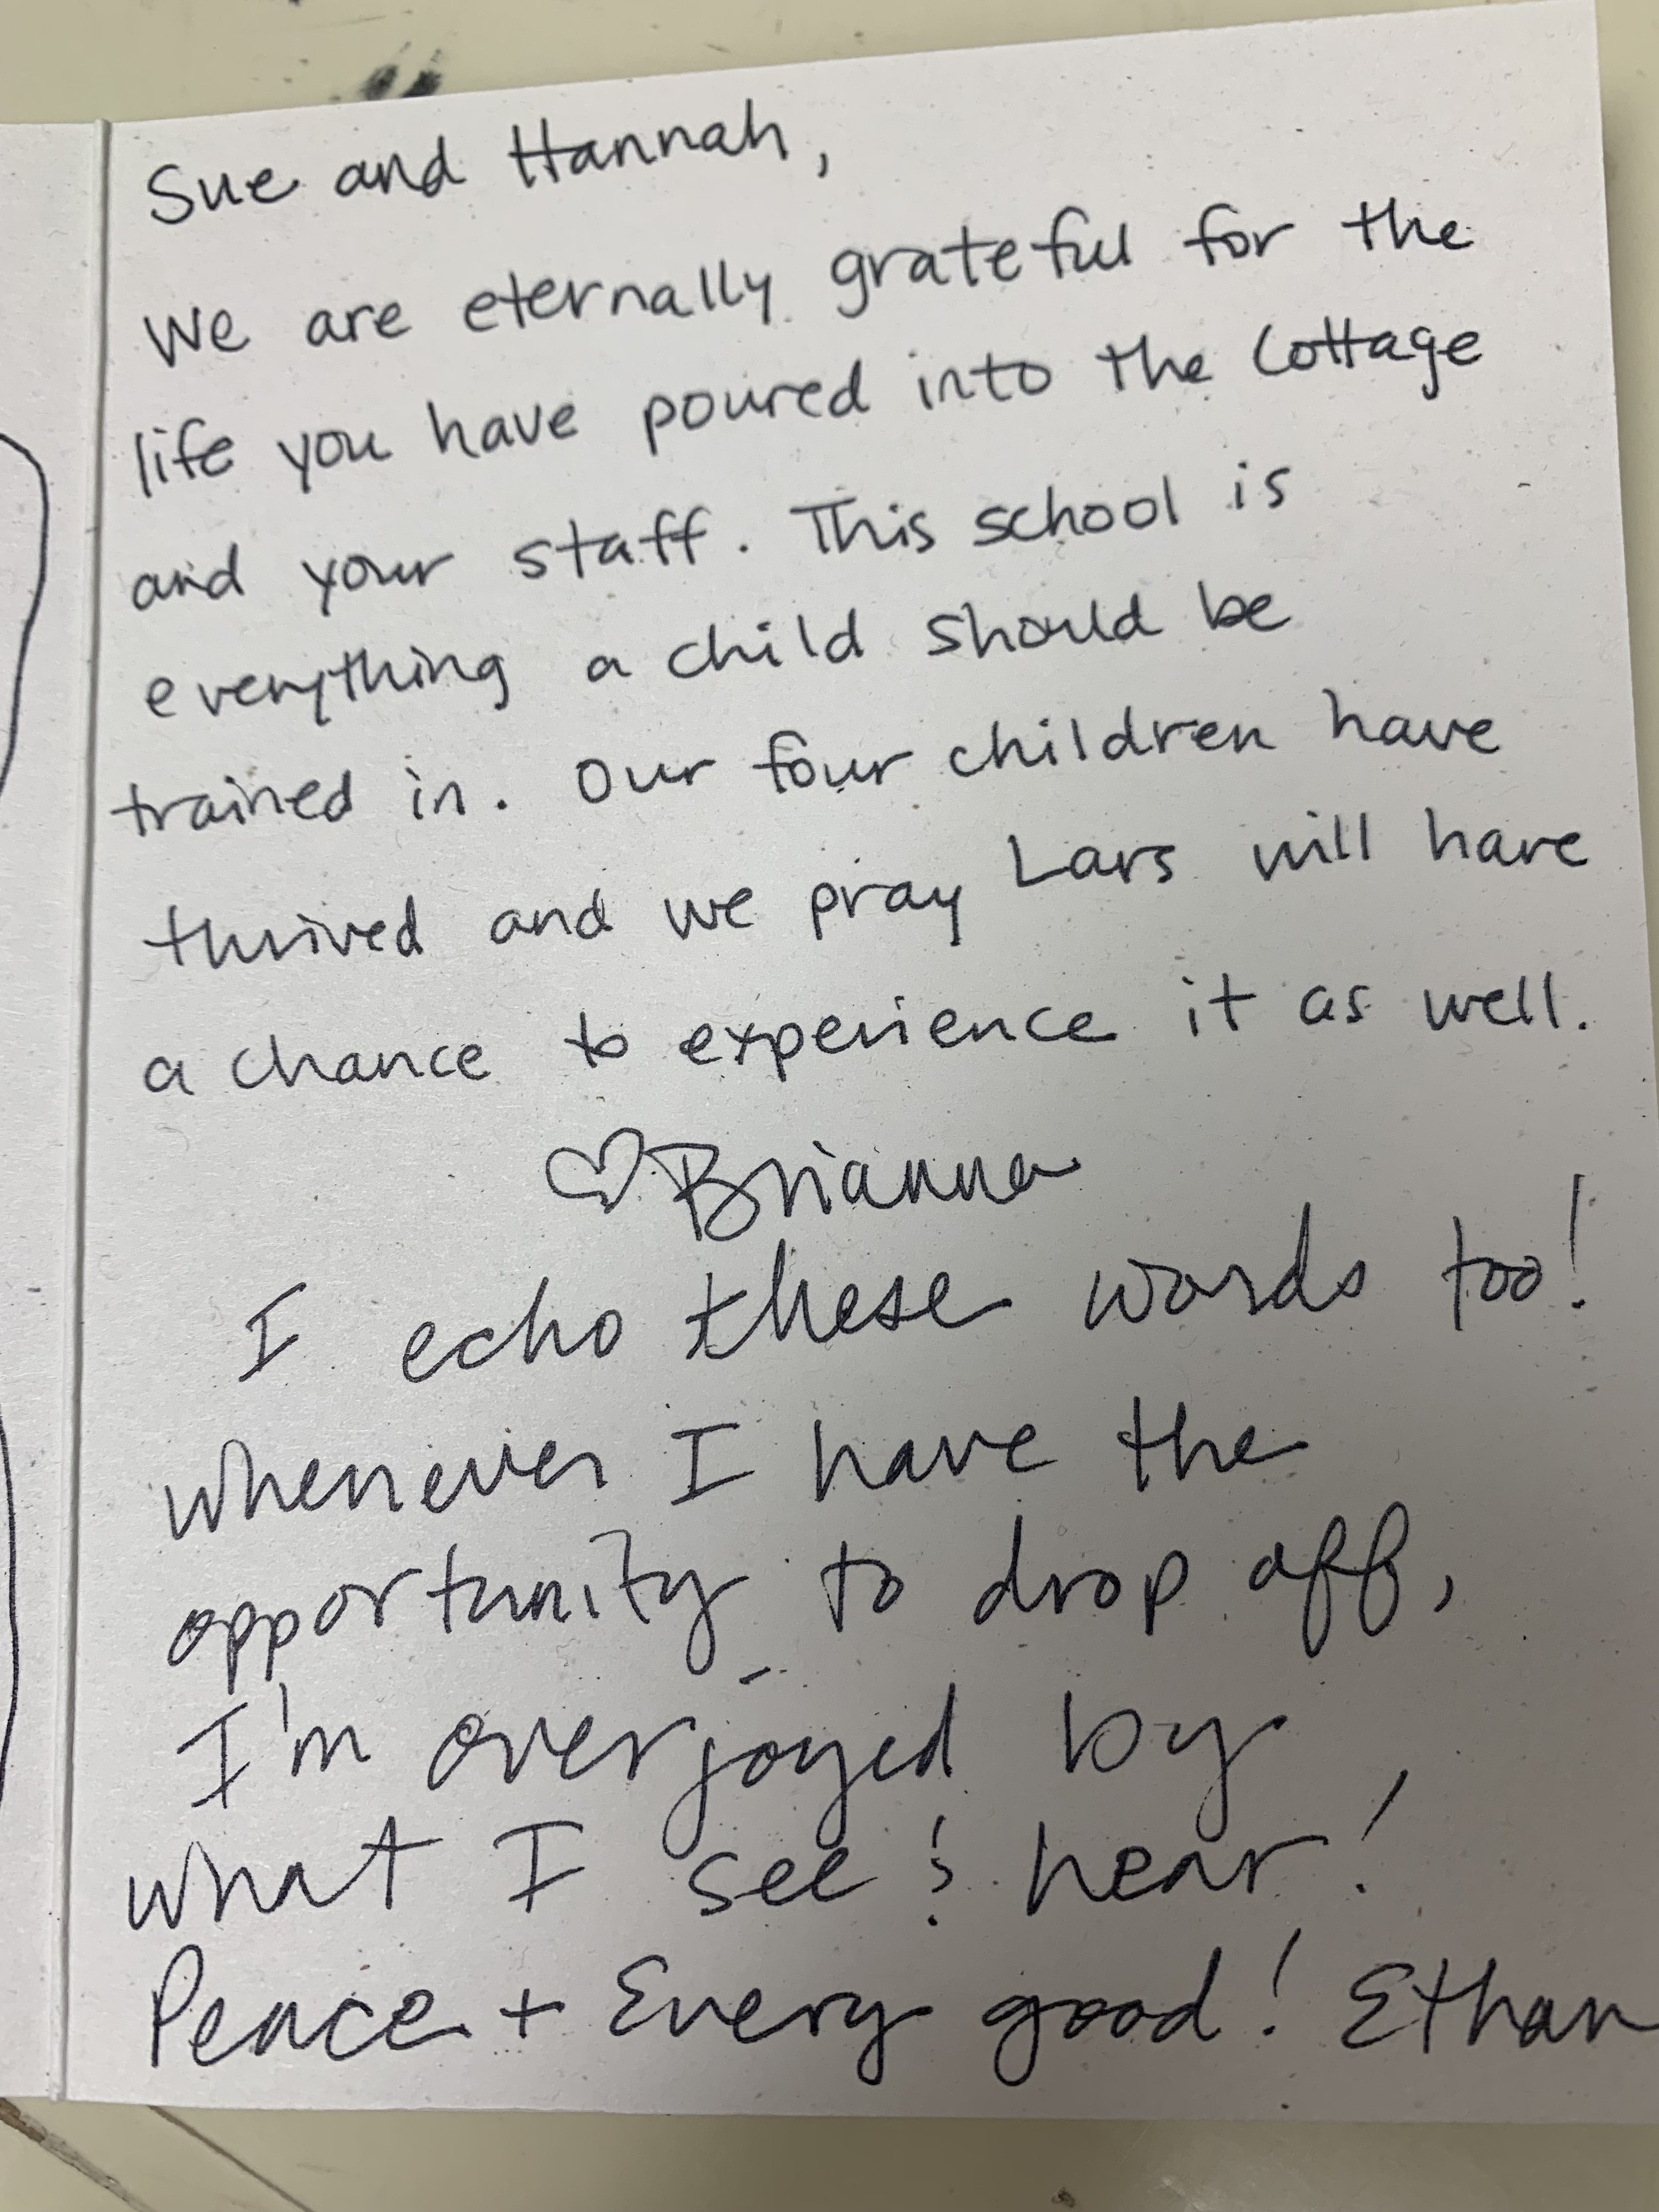 Sue and Hannah,
We are eternally grateful for the
life you have poured into the Cottage
and your staff. This school is
everything a child should be
trained in. Our four children have
thrived and we pray Lars will have
a chance to experience it as well.
♡Brianna
I echo these words too!
Whenever I have the
opportunity to drop off,
I'm overjoyed by
what I see & hear!
Peace + Every good! Ethan